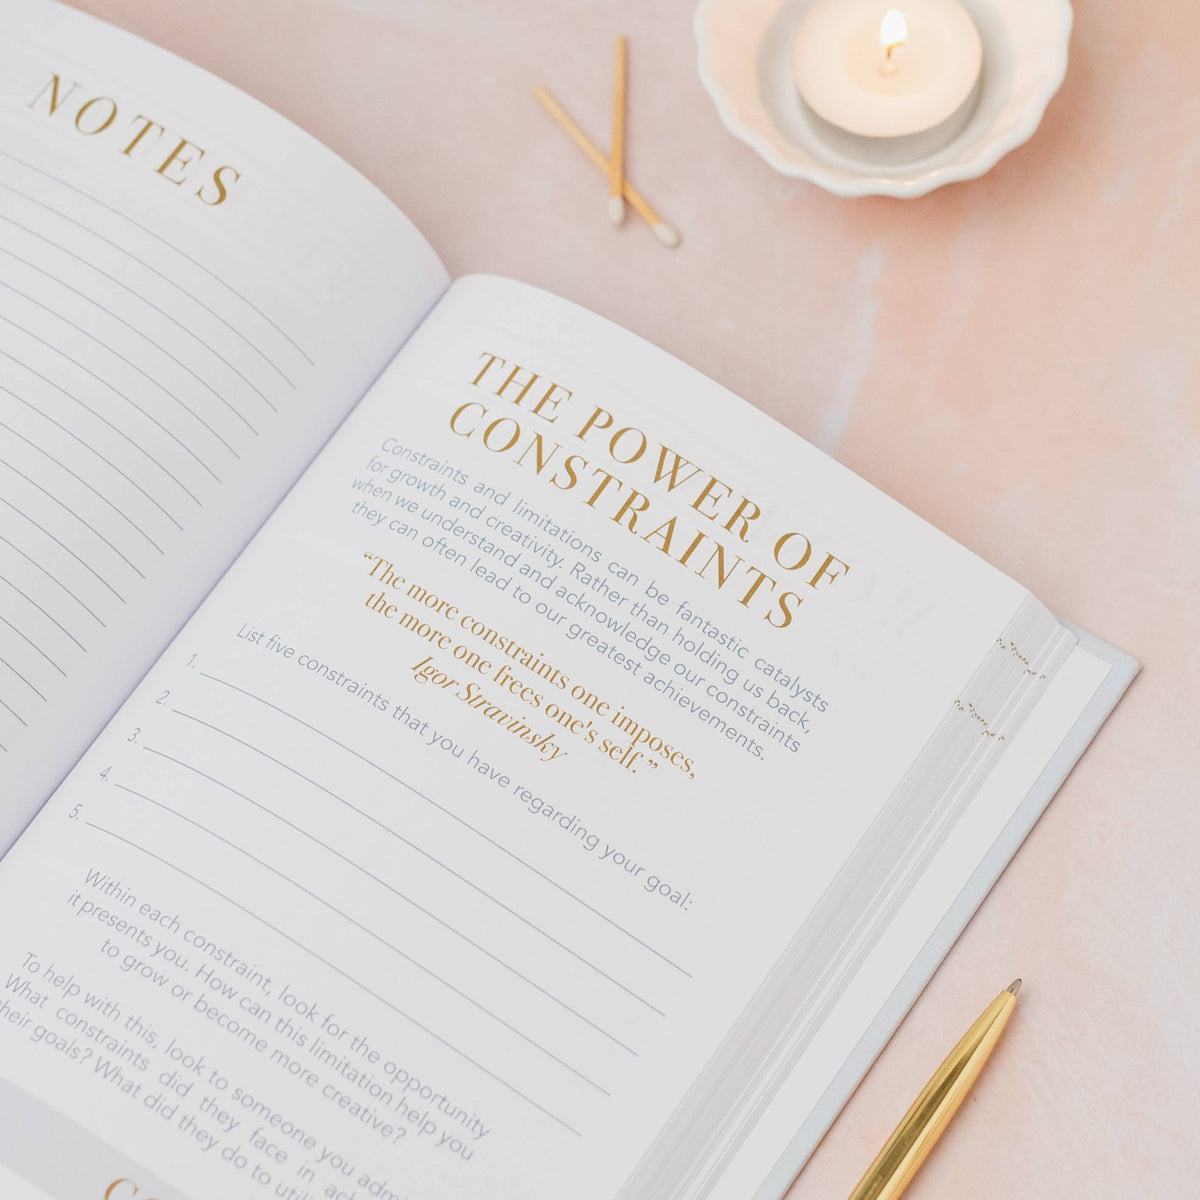 NOTES
THE POWER OF
CONSTRAINTS
Constraints and limitations can be fantastic catalysts
for growth and creativity. Rather than holding us back,
when we understand and acknowledge our constraints
they can often lead to our greatest achievements.
“The more constraints one imposes,
the more one frees one's self.”
Igor Stravinsky
List five constraints that you have regarding your goal:
1.
2.
3.
4.
5.
Within each constraint, look for the opportunity
it presents you. How can this limitation help you
to grow or become more creative?
To help with this, look to someone you
What constraints did they face in
their goals? What did they do to